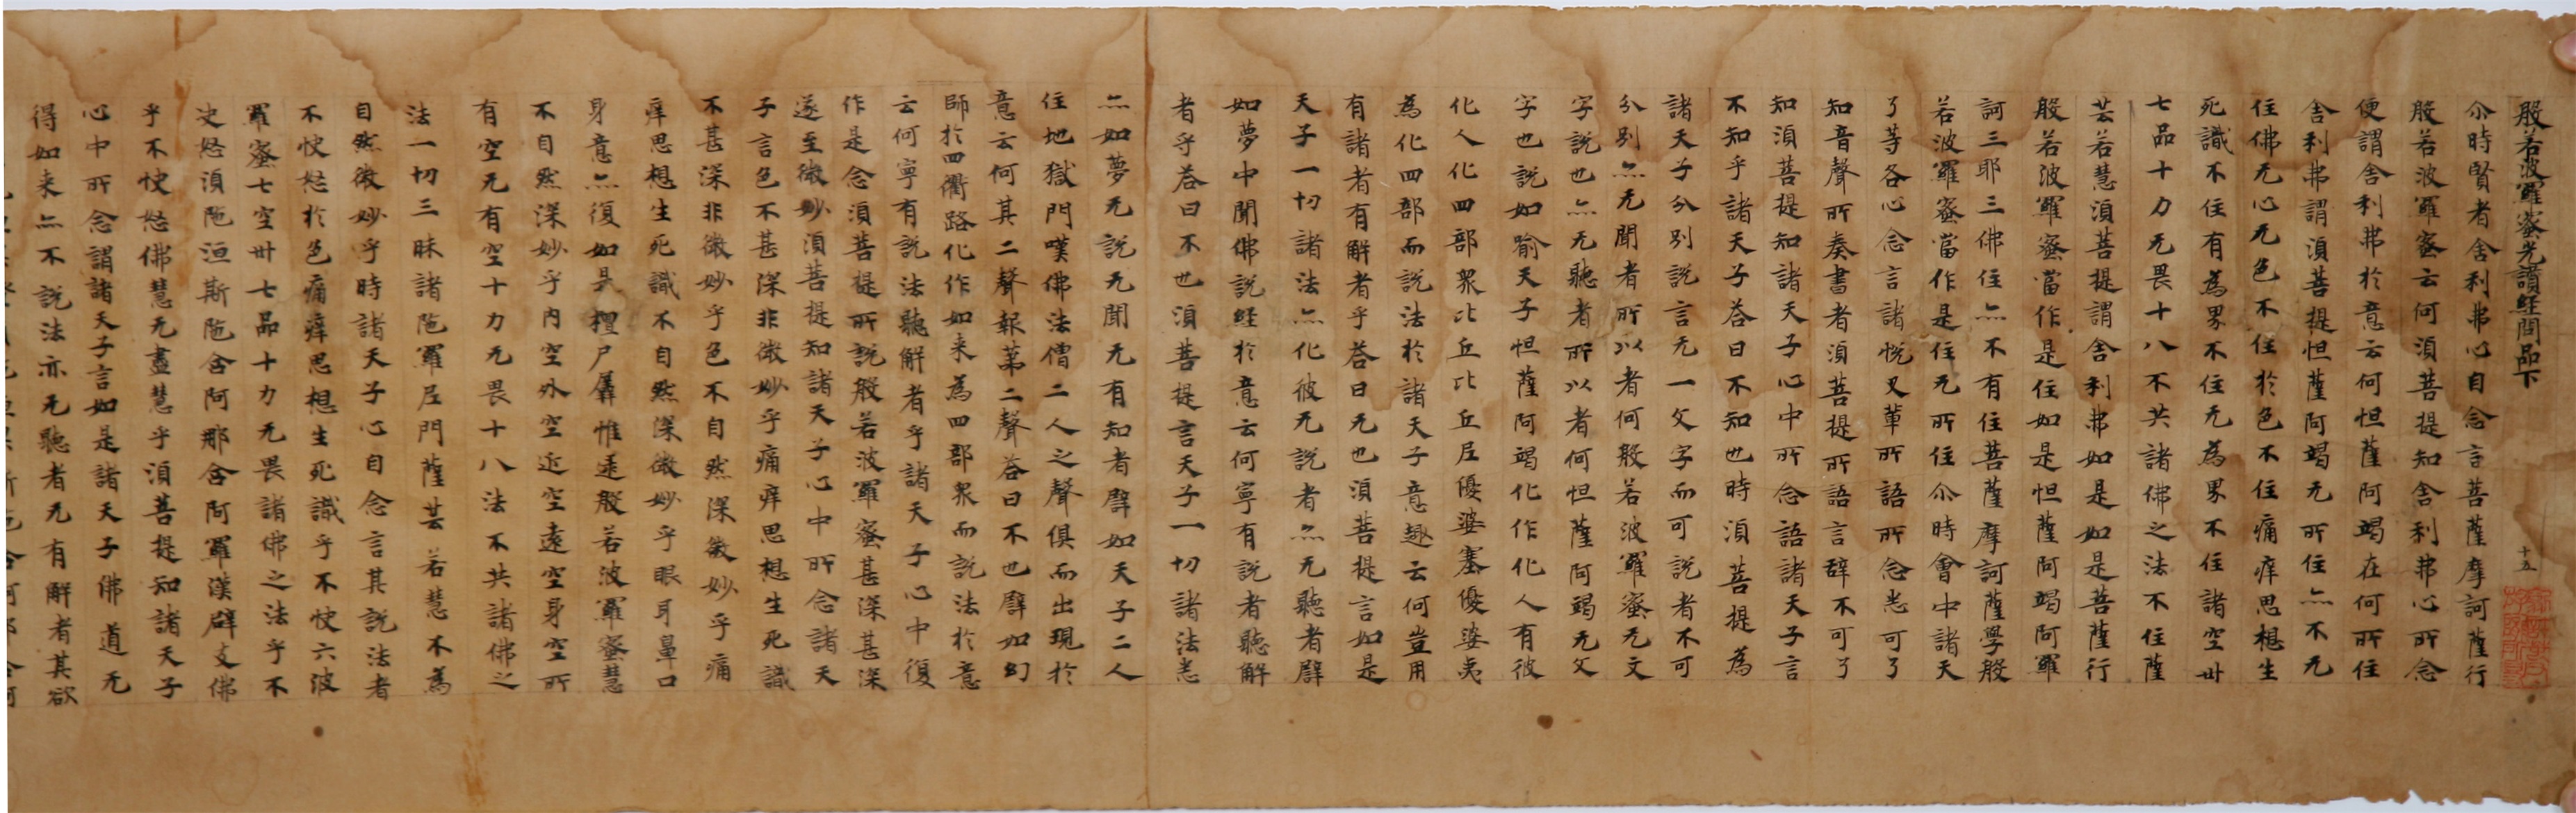 般若波羅蜜光讚経問品下 十五
尒時賢者舍利弗心自念言菩薩摩訶薩行
般若波羅蜜云何須菩提知舍利弗心所念
便謂舍利弗於意云何怛薩阿竭在何所住
舍利弗謂須菩提怛薩阿竭无所住亦不无
住佛无心无色不住於色不住痛痒思想生
死識不住有為界不住无為界不住諸空卅
七品十力无畏十八不共諸佛之法不住薩
芸若慧須菩提謂舍利弗如是如是菩薩行
般若波羅蜜當作是住如是怛薩阿竭阿羅
訶三耶三佛住亦不有住菩薩摩訶薩學般
若波羅蜜當作是住无所住尒時會中諸天
了等各心念言諸悅叉輩所語所念悉可了
知音聲所奏書者須菩提所語言辞不可了
知須菩提知諸天子心中所念語諸天子言
不知乎諸天子荅曰不知也時須菩提為
諸天子分別說言无一文字而可說者不可
分別亦无聞者所以者何般若波羅蜜无文
字說也亦无聽者所以者何怛薩阿竭无文
字也說如喻天子怛薩阿竭化作化人有彼
化人化四部衆比丘比丘尼優婆塞優婆夷
為化四部而說法於諸天子意趣云何豈用
有諸者有解者乎荅曰无也須菩提言如是
天子一切諸法亦化彼无說者亦无聽者辟
如夢中聞佛說経於意云何寧有說者聽解
者乎荅曰不也須菩提言天子一切諸法悉
亦如夢无說无聞无有知者辟如天子二人
住地獄門嘆佛法僧二人之聲俱而出現於
意云何其二聲報第二聲荅曰不也辟如幻
師於四衢路化作如来為四部衆而說法於意
云何寧有說法聽解者乎諸天子心中復
作是念須菩提所說般若波羅蜜甚深甚深
遂至微妙須菩提知諸天子心中所念諸天
子言色不甚深非微妙乎痛痒思想生死識
不甚深非微妙乎色不自然深微妙乎痛
痒思想生死識不自然深微妙乎眼耳鼻口
身意亦復如是檀尸羼惟逮般若波羅蜜慧
不自然深妙乎內空外空近空遠空身空所
有空无有空十力无畏十八法不共諸佛之
法一切三昧諸陁羅尼門薩芸若慧不為
自然微妙乎時諸天子心自念言其說法者
不怏怒於色痛痒思想生死識乎不怏六波
羅蜜七空卅七品十力无畏諸佛之法乎不
怏怒須陁洹斯陁含阿那含阿羅漢辟支佛
乎不怏怒佛慧无盡慧乎須菩提知諸天子
心中所念謂諸天子言如是諸天子佛道无
得如来亦不說法亦无聽者无有解者其欲